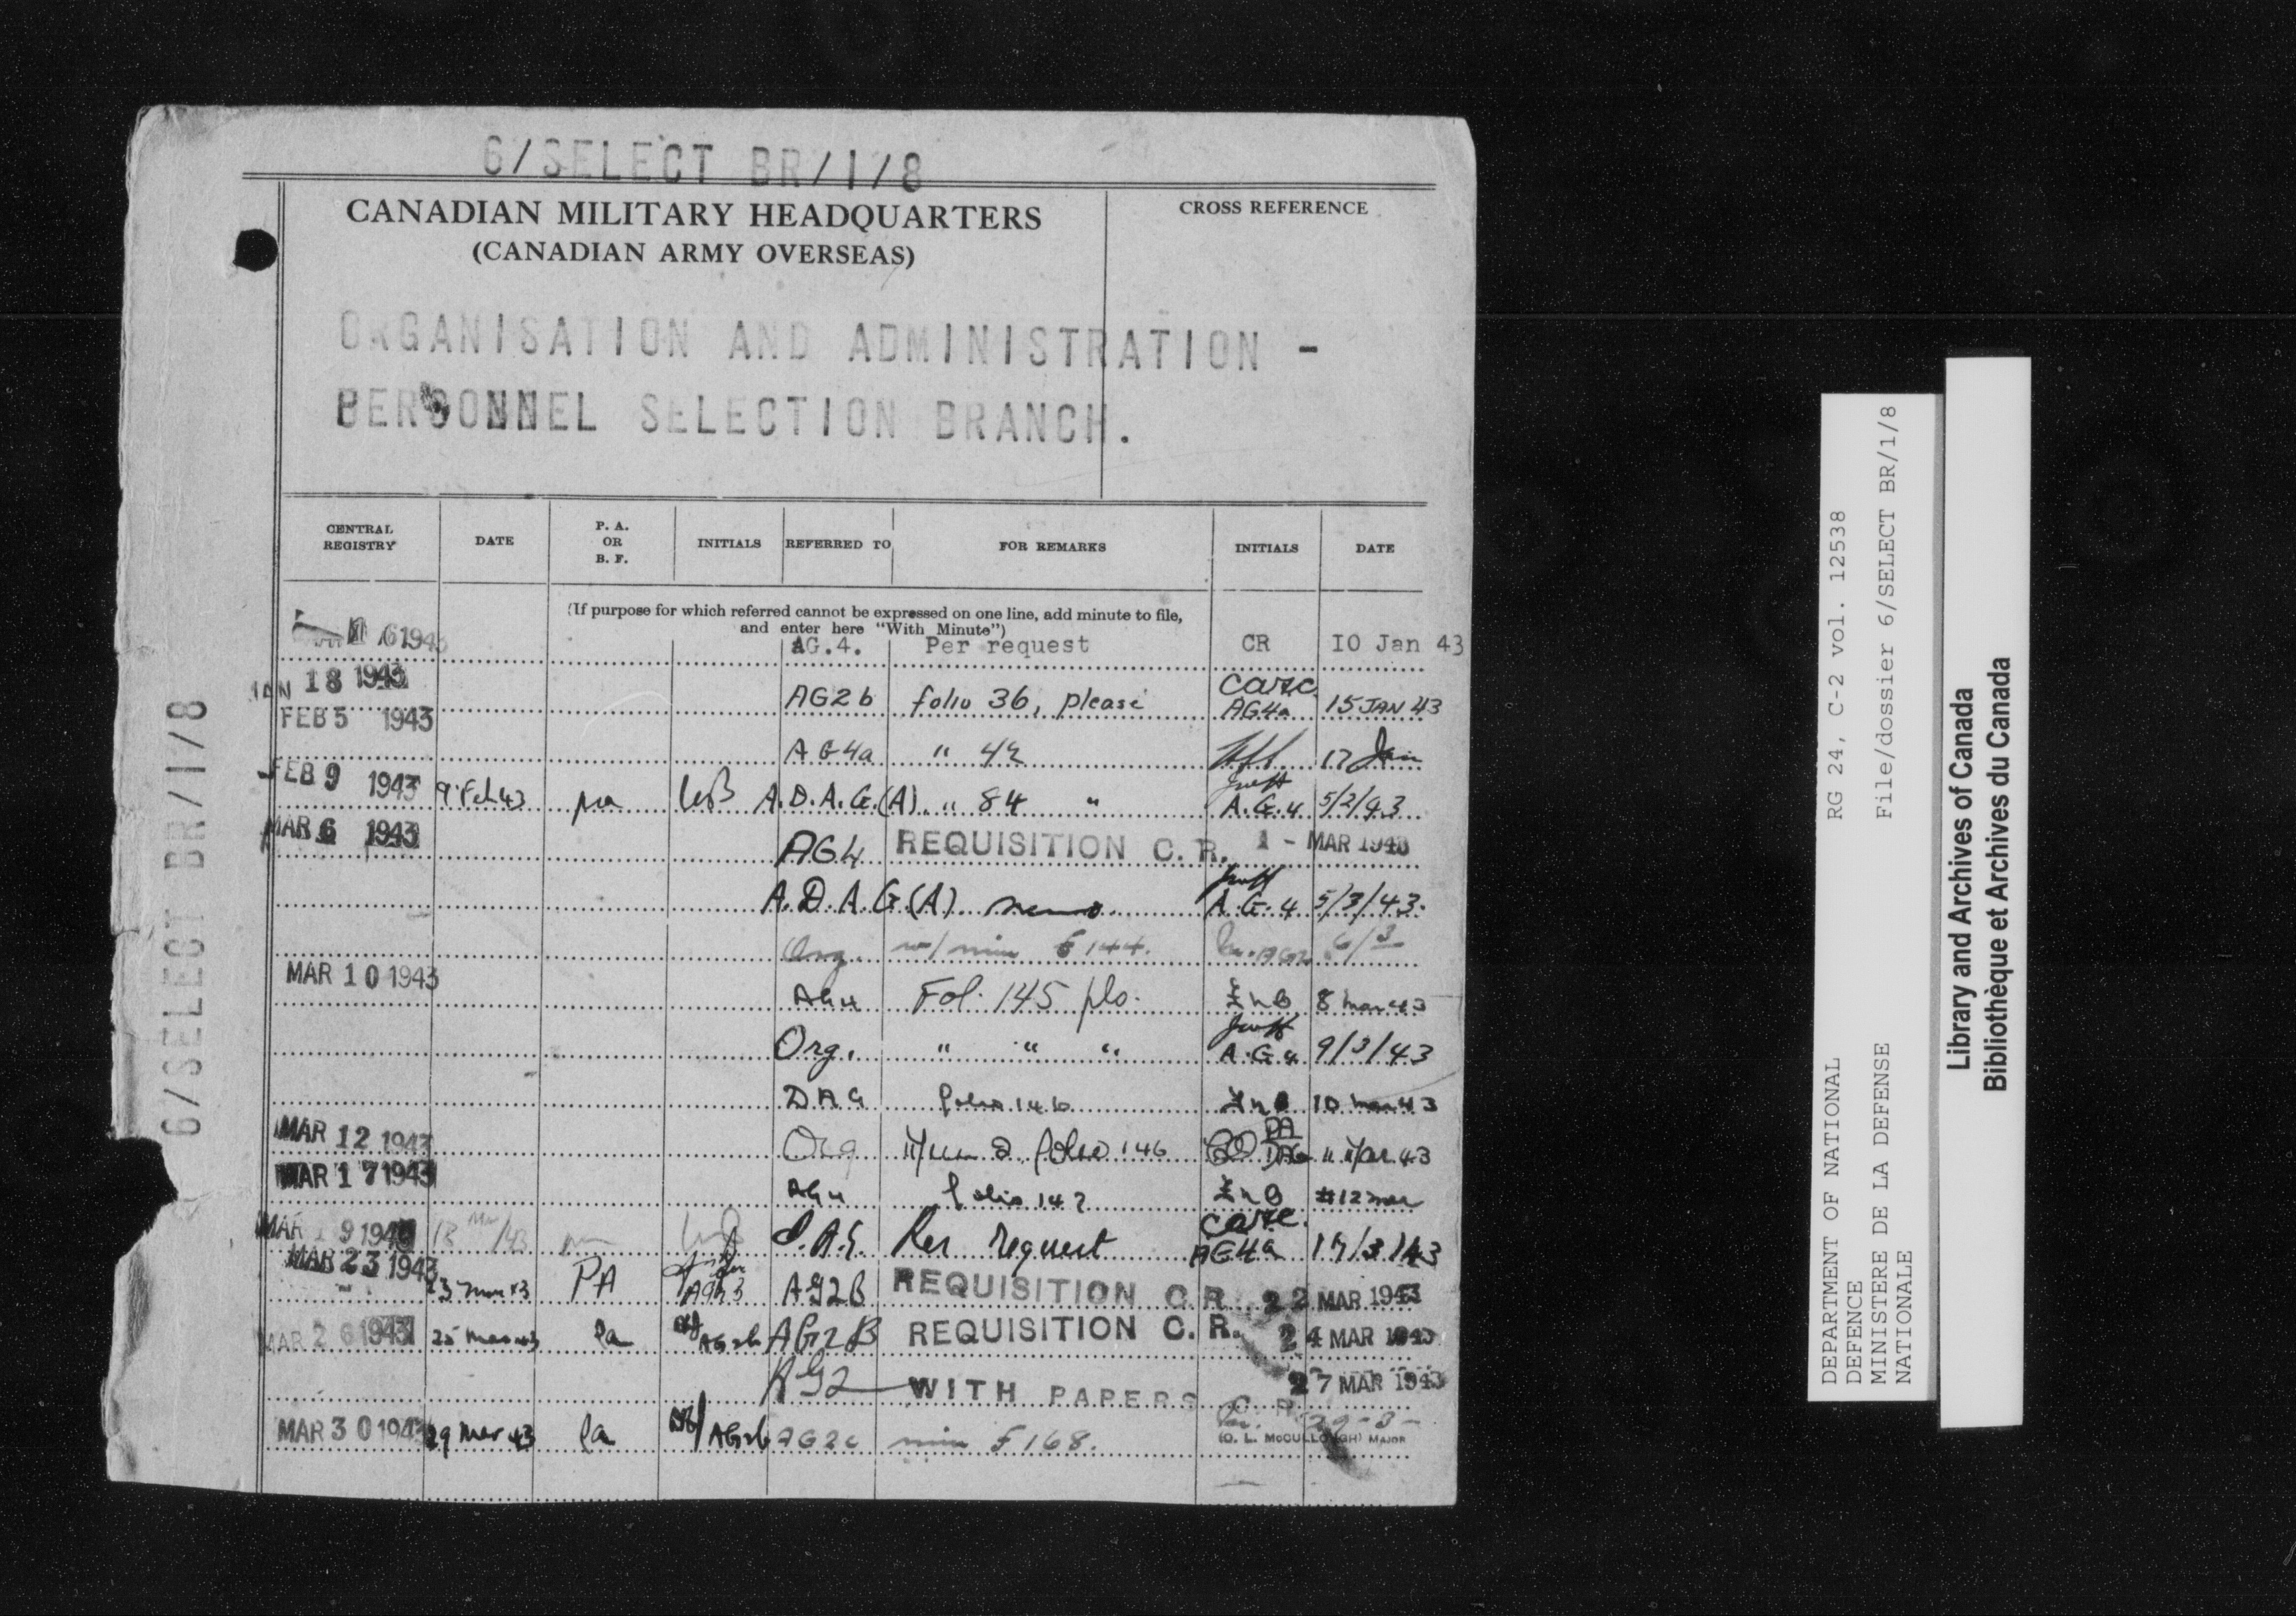 6/SELECT BR/1/8
CANADIAN MILITARY HEADQUARTERS
(CANADIAN ARMY OVERSEAS)
CROSS REFERENCE
ORGANISATION AND ADMINISTRATION -
PERSONNEL SELECTION BRANCH.
CENTRAL REGISTRY DATE P. A. OR B. F. INITIALS REFERRED TO FOR REMARKS INITIALS DATE
(If purpose for which referred cannot be expressed on one line, add minute to file,
and enter here "With Minute")
1943 AG.4. Per request CR 10 Jan 43
JAN 18 1943 AG2b folio 36, please AG4a 15 JAN 43
FEB 5 1943
AG4a " 42 17 Jan
FEB 9 1943 9 Feb 43 pa A.D.A.G.(A) " 84 " A.G.4 5/2/43
MAR 6 1943 AG4 REQUISITION C.R. 1 - MAR 1943
A.D.A.G(A) memo A.G.4 5/3/43
Org w/min f 144. 6/3
MAR 10 1943 AG4 Fol. 145 pls. 8 Mar 43
Org. " " " A.G.4 9/3/43
DAG folio 146 10 Mar 43
MAR 12 1943 Org folio 146 PA DAG 43
MAR 17 1943 AG4 folio 147 12 Mar
MAR 19 1943 D.A.G. Per request AG4a 17/3/43
MAR 23 1943 23 Mar 43 PA AG2B REQUISITION C.R. 22 MAR 1943
MAR 26 1943 25 Mar 43 Pa AG2b AG2B REQUISITION C.R. 24 MAR 1943
AG2 WITH PAPERS C.R. 27 MAR 1943
MAR 30 1943 29 Mar 43 Pa AG2b AG2c min f 168. 29-3-
(O. L. McCULLOUGH) MAJOR
6/SELECT BR/1/8
DEPARTMENT OF NATIONAL RG 24, C-2 vol. 12538
DEFENCE
MINISTERE DE LA DEFENSE File/dossier 6/SELECT BR/1/8
NATIONALE
Library and Archives of Canada
Bibliothèque et Archives du Canada